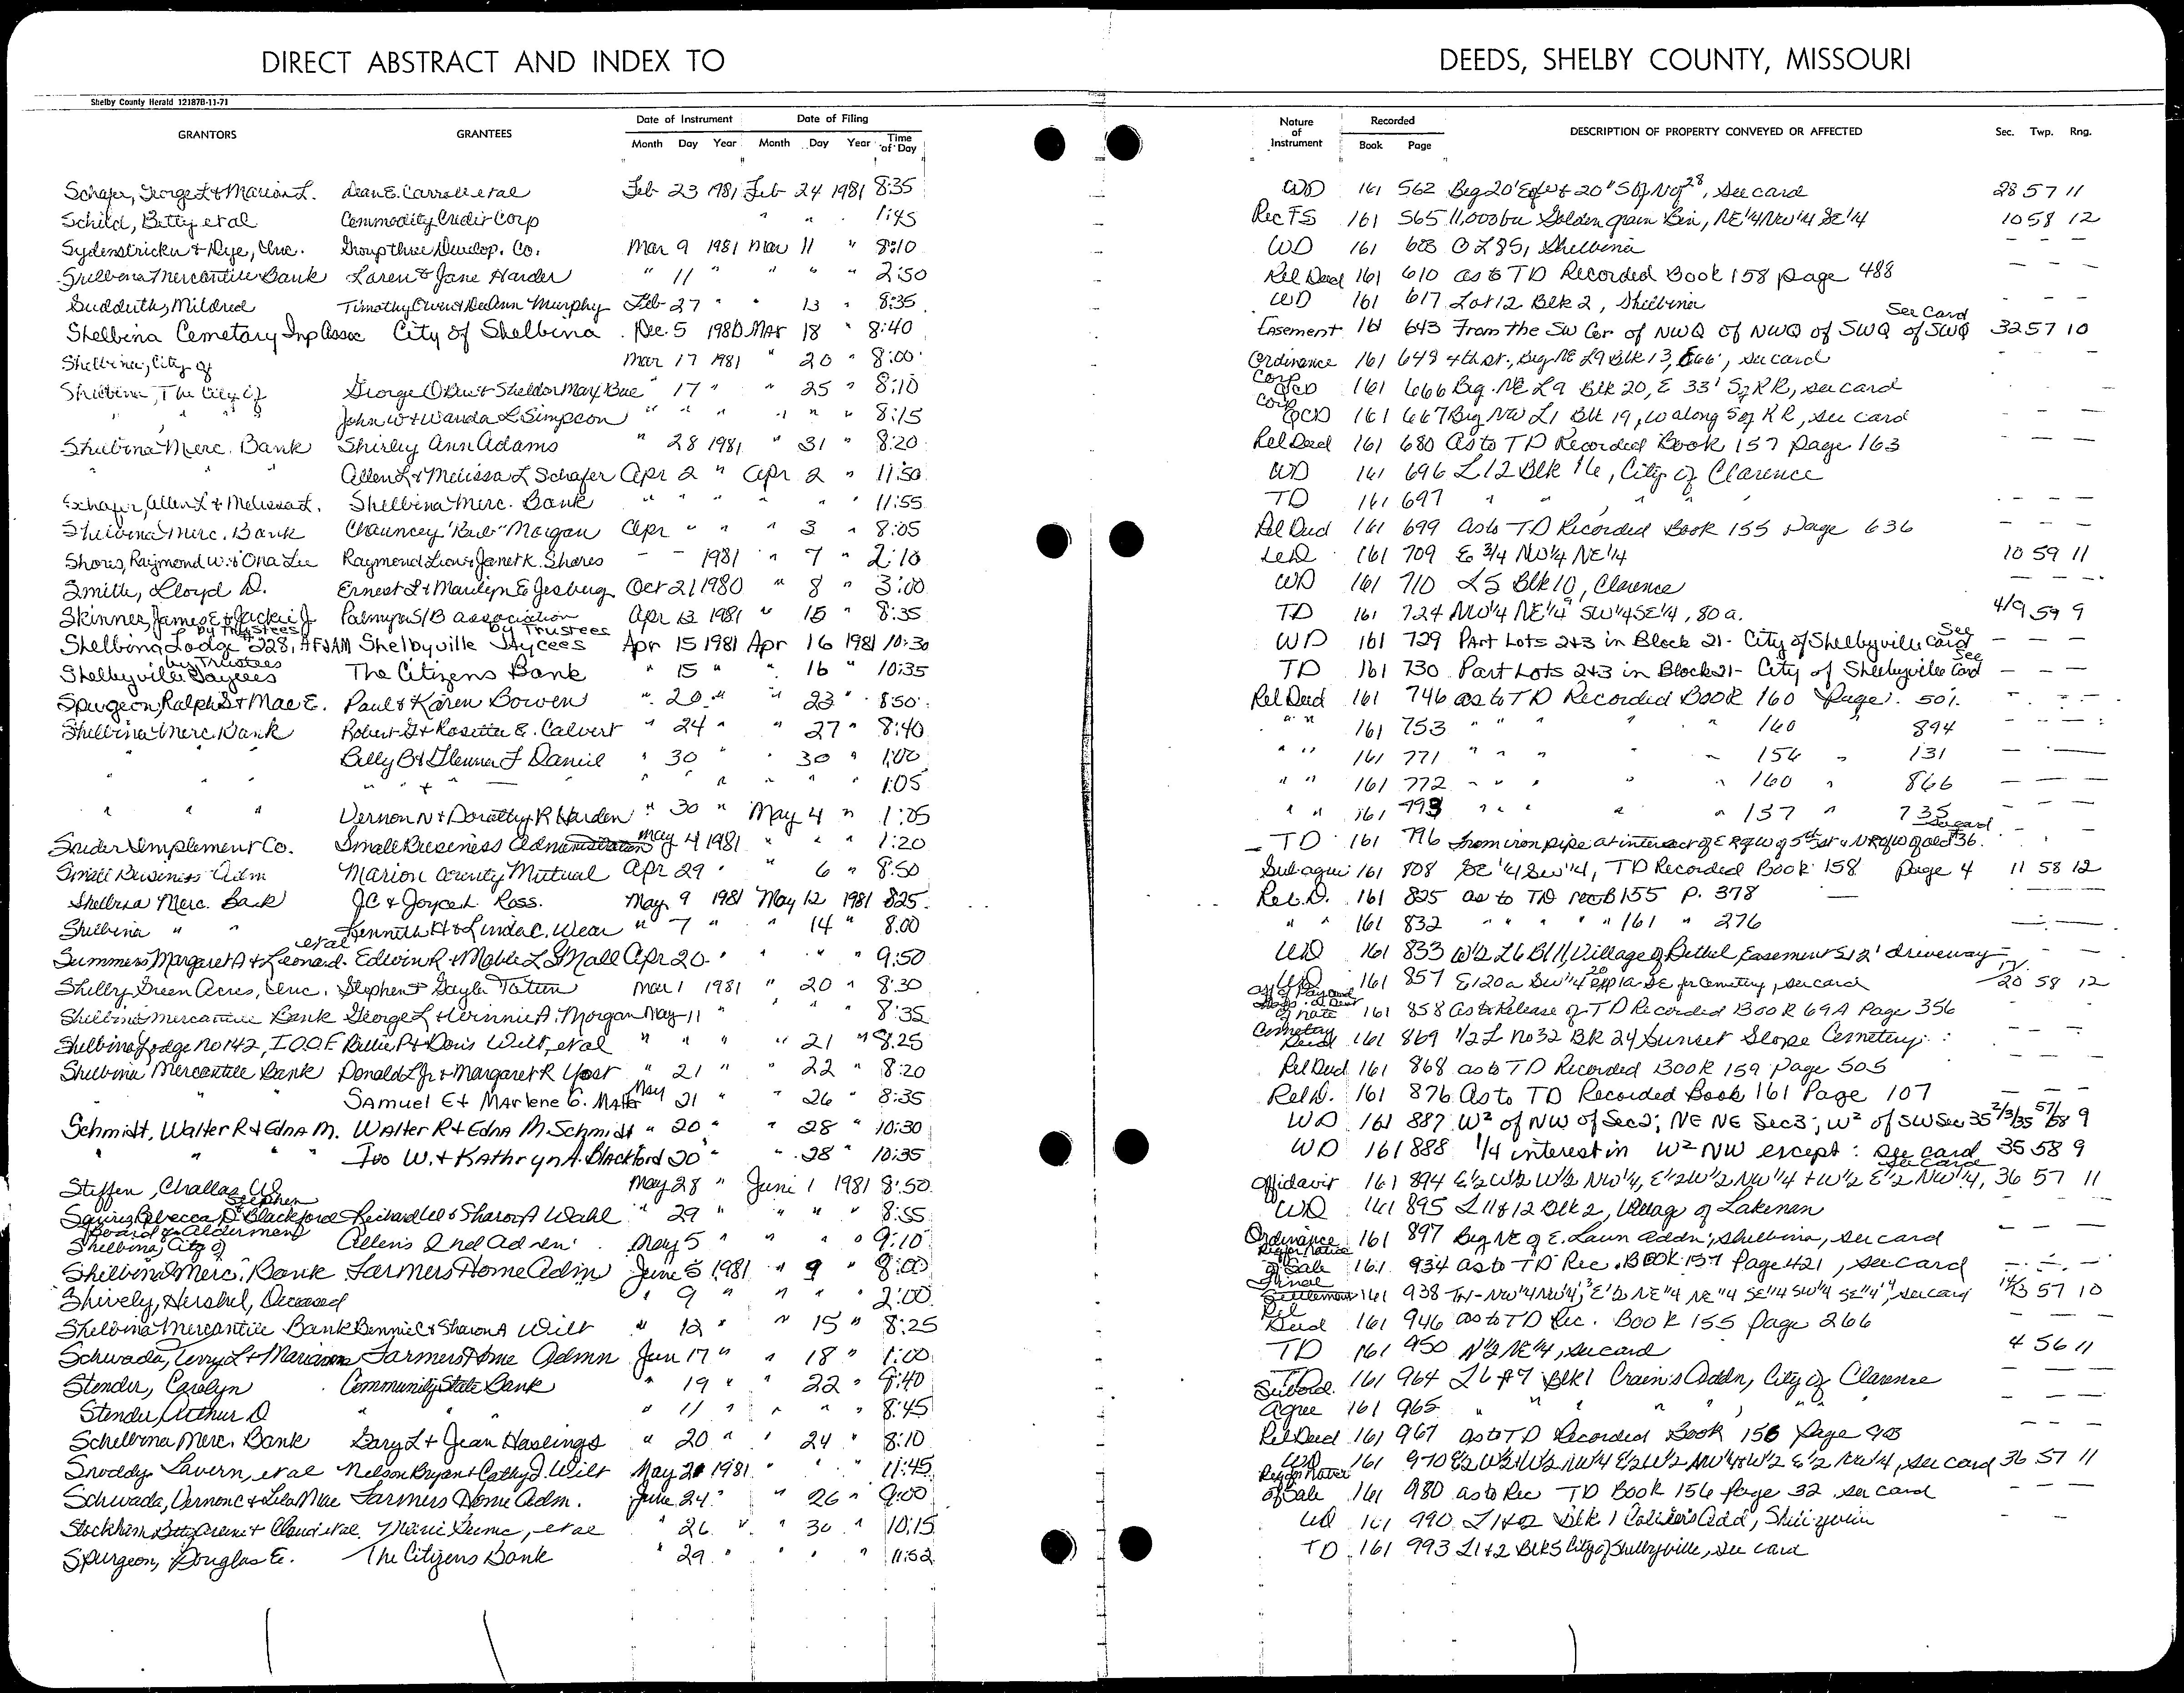 DIRECT ABSTRACT AND INDEX TO DEEDS, SHELBY COUNTY, MISSOURI
Shelby County Herald 12187B-11-71
GRANTORS GRANTEES Date of Instrument Date of Filing Nature of Instrument Recorded DESCRIPTION OF PROPERTY CONVEYED OR AFFECTED Sec. Twp. Rng.
Month Day Year Month Day Year Time of Day Book Page
Schafer, George L & Marian L. Dean E. Carroll et al Feb 23 1981 Feb 24 1981 8:35 WD 161 562 Beg 20' E of & 20" S of 28, See card 28 57 11
Schild, Betty et al Commodity Credit Corp " " 1:45 Rec FS 161 565 11,000 bu Golden grain Bin, NE 1/4 NW 1/4 SE 1/4 10 58 12
Sydenstricker & Nye, Inc. Group three Develop. Co. Mar 9 1981 Mar 11 " 8:10 WD 161 O L 85, Shelbina - - -
Shelbina Mercantile Bank Loren & Jane Harder " 11 " " " " 2:50 Rel Deed 161 610 as to TD Recorded Book 158 page 488 - - -
Sudduth, Mildred Timothy Owen & DeAnn Murphy Feb 27 " " 13 " 8:35 WD 161 617 Lot 12 Blk 2, Shelbina - -
Shelbina Cemetary Imp Assoc City of Shelbina Dec. 5 1980 MAR 18 " 8:40 Easement 161 643 From the SW Cor of NWQ of NWQ of SWQ of SWQ See Card 32 57 10
Shelbina, City of Mar 17 1981 " 20 " 8:00 Ordinance 161 649 4th st., Beg NE L9 Blk 13, E66', see card
Shelbina, The City of George O & Sheldon May Bue " 17 " " 25 " 8:10 Corp QCD 161 666 Beg. NE L 9 Blk 20, E 33' S of RR, see card
" " " John W & Wanda L Simpson " " " " " " 8:15 Corp QCD 161 667 Beg NW L1 Blk 19, W along S of RR, see card
Shelbina Merc. Bank Shirley Ann Adams " 28 1981 " 31 " 8:20 Rel Deed 161 680 As to TD Recorded Book 157 page 163 - - -
" " Allen L & Melissa L Schafer Apr 2 " Apr 2 " 11:50 WD 161 696 L 12 Blk 16, City of Clarence
Schafer, Allen L & Melissa L. Shelbina Merc. Bank " " " " " " 11:55 TD 161 697 " " " " - - -
Shelbina Merc. Bank Chauncey "Bub" Morgan Apr " " " 3 " 8:05 Rel Deed 161 699 as to TD Recorded Book 155 page 636 - - -
Shores, Raymond W. & Ona Lee Raymond Leon & Janet K. Shores - - 1981 " 7 " 2:10 161 709 E 3/4 NW 1/4 NE 1/4 10 59 11
Smith, Lloyd D. Ernest L & Marilyn E Jesburg Oct 21 1980 " 8 " 3:00 WD 161 710 L 5 Blk 10, Clarence - - -
Skinner, James E & Jackie J Palmyra S/B association Apr 13 1981 " 15 " 8:35 TD 161 724 NW 1/4 NE 1/4 9 SW 1/4 SE 1/4, 80 a. 4/9 59 9
Shelbina Lodge #228, AF & AM by Trustees Shelbyville Jaycees by Trustees Apr 15 1981 Apr 16 1981 10:30 WD 161 729 Part Lots 2+3 in Block 21 - City of Shelbyville See Card - - -
Shelbyville Jaycees by Trustees The Citizens Bank " 15 " " 16 " 10:35 TD 161 730 Part Lots 2+3 in Block 21 - City of Shelbyville See Card - - -
Spurgeon, Ralph S & Mae E. Paul & Karen Bowen " 20 " " 23 " 8:50 Rel Deed 161 746 as to TD Recorded Book 160 Page 501 - - -
Shelbina Merc Bank Robert G & Rosetta E. Calvert " 24 " " 27 " 8:40 " " 161 753 " " " " 160 " 894 - - -
Billy B & Glenna F Daniel " 30 " " 30 " 1:00 " " 161 771 " " " " 154 " 131 - - -
" " " " " + " " " " " " " 1:05 " " 161 772 " " " " 160 " 866 - - -
" " " Vernon N & Dorothy R Harden " 30 " May 4 " 1:05 " " 161 793 " " " " 157 " 735 - - -
Snider Implement Co. Small Business Administration May 4 1981 " " " 1:20 TD 161 796 From iron pipe at intersect of E R of W of 5th st & N R of W of old #36. See card - -
Small Business Adm Marion County Mutual Apr 29 " " 6 " 8:50 Sub. agree 161 808 SE 1/4 SW 1/4, TD Recorded Book 158 page 4 11 58 12
Shelbina Merc. Bank JC & Joyce L Ross. May 9 1981 May 12 1981 8:25 Rel. D. 161 825 as to TD rec B 155 P. 378
Shelbina " " Kenneth H & Linda C. Wear " 7 " " 14 " 8:00 " " 161 832 " " " " 161 " 276
Summers Margaret A & Leonard et al Edwin R & Mable L Small Apr 20 " " " " 9:50 WD 161 833 W 1/2 L 6 Bl 11, Village of Bethel, Easement S 12' driveway - - -
Shelby Green Acres, Inc. Stephen & Gayle Tatum Mar 1 1981 " 20 " 8:30 WD 161 857 E 120 a SW 1/4 20 exp 1a SE for Cemetery, see card 17/20 58 12
Shelbina Mercantile Bank George L & Winnie A. Morgan May 11 " " " 8:35 161 858 As to Release of TD Recorded Book 69A Page 356
Shelbina Lodge No 142, I.O.O.F. Billie P & Doris Wilt, et al " " " " 21 " 8:25 Cemetary Deed 161 869 1/2 L No 32 BK 24 Sunset Slope Cemetery - - -
Shelbina Mercantile Bank Donald L Jr & Margaret R Yost " 21 " " 22 " 8:20 Rel Deed 161 868 as to TD Recorded Book 159 Page 505 - - -
" " Samuel E & Marlene G. May 21 " " 26 " 8:35 Rel D. 161 876 As to TD Recorded Book 161 Page 107 - - -
Schmidt, Walter R & Edna M. Walter R & Edna M Schmidt " 20 " " 28 " 10:30 WD 161 887 W² of NW of Sec 2; NE NE Sec 3; W² of SW Sec 35 2/3/35 57/58 9
" " " " Ivo W. & Kathryn A. Blackford 20 " " 28 " 10:35 WD 161 888 1/4 interest in W² NW except: see card 35 58 9
Steffen, Challas W May 28 " June 1 1981 8:50 Affidavit 161 894 E 1/2 W 1/2 W 1/2 NW 1/4, E 1/2 W 1/2 NW 1/4 + W 1/2 E 1/2 NW 1/4, See Card 36 57 11
Squires Rebecca D Stephen Blackford Richard W & Sharon A Wahl " 29 " " " " 8:55 WD 161 895 L 11 & 12 Blk 2, Village of Lakenan
Shelbina, City of Board of Aldermen Allen's 2nd Addn. May 5 " " " " 9:10 Ordinance 161 897 Beg NE of E. Lawn addn, Shelbina, see card - - -
Shelbina Merc. Bank Farmers Home Adm June 5 1981 " 9 " 8:00 Req for Notice of Sale 161 934 as to TD Rec. Book 157 Page 421, see card - - -
Shively, Hershel, Deceased " 9 " " " " 2:00 Final Settlement 161 938 NW 1/4 NW 1/4, E 1/2 NE 1/4 NE 1/4 SE 1/4 SW 1/4 SE 1/4, see card 57 10
Shelbina Mercantile Bank Bennie C & Sharon A Wilt " 12 " " 15 " 8:25 Rel Deed 161 946 as to TD Rec. Book 155 page 266
Schwada, Terry L & Mariann Farmers Home Admn Jun 17 " " 18 " 1:00 TD 161 950 N 1/2 NE 1/4, see card 4 56 11
Stender, Carolyn Community State Bank " 19 " " 22 " 8:40 TD 161 964 L 6 & 7 Blk 1 Crain's Addn, City of Clarence - - -
Stender, Arthur D " " " " 11 " " " " 8:45 Subord. Agree 161 965 " " " " " - - -
Schelbina Merc. Bank Gary L & Jean Hastings " 20 " " 24 " 8:10 Rel Deed 161 967 as to TD Recorded Book 156 Page - - -
Snoddy Lavern, et al Nelson Bryan & Cathy J. Wilt May 21 1981 " " " 11:45 WD 161 970 E 1/2 W 1/2 W 1/2 NW 1/4 E 1/2 W 1/2 NW 1/4 & W 1/2 E 1/2 NW 1/4, see card 36 57 11
Schwada, Vernon C & Lila Mae Farmers Home Adm. June 24 " " 26 " 9:00 Req for Notice of Sale 161 980 as to Rec TD Book 156 Page 32 see card - - -
Stockham & Claud et al. , et al " 26 " " 30 " 10:15 WD 161 990 L 1 & 2 Blk 1 Add, - -
Spurgeon, Douglas E. The Citizens Bank " 29 " " " " 11:52 TD 161 993 L 1 & 2 Blk 5 City of Shelbyville, see card